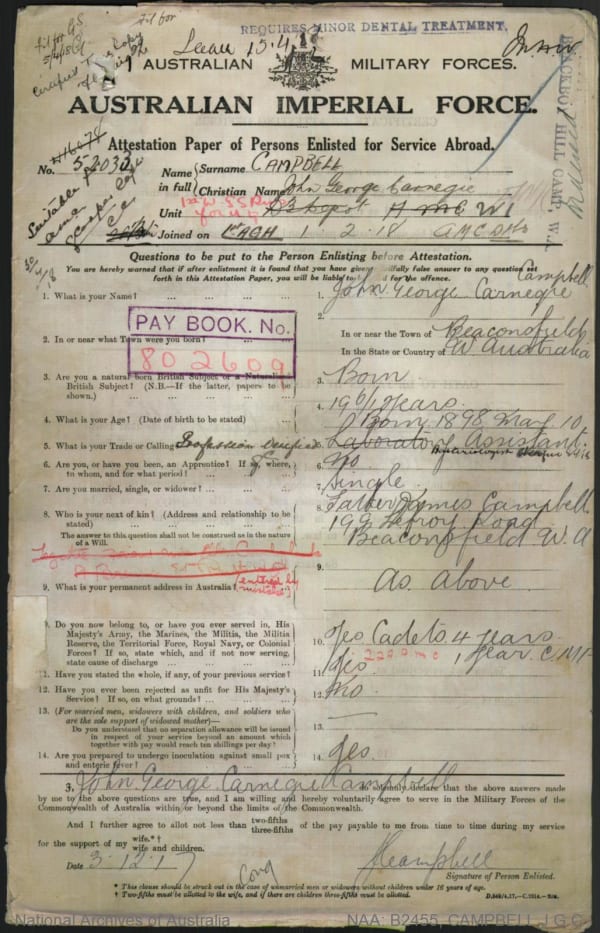 REQUIRES MINOR DENTAL TREATMENT.
AUSTRALIAN MILITARY FORCES.
AUSTRALIAN IMPERIAL FORCE.
BLACKBOY HILL CAMP, W.
Attestation Paper of Persons Enlisted for Service Abroad.
No. 52032
Name in full
Surname CAMPBELL
Christian Name John George Carnegie
Unit
Joined on 1.2.18
Questions to be put to the Person Enlisting before Attestation.
You are hereby warned that if after enlistment it is found that you have given a wilfully false answer to any question set
forth in this Attestation Paper, you will be liable to for the offence.
1. What is your Name? ... ... ... 1. John George Carnegie Campbell
PAY BOOK. No.
802609
2. In or near what Town were you born? 2. In or near the Town of Beaconsfield
In the State or Country of W Australia
3. Are you a natural born British Subject or a Naturalised
British Subject? (N.B.—If the latter, papers to be
shown.) 3. Born
4. What is your Age? (Date of birth to be stated) 4. years.
Born 1898 May 10
5. What is your Trade or Calling? Profession 5. Laboratory Assistant
6. Are you, or have you been, an Apprentice? If so, where,
to whom, and for what period? 6. No
7. Are you married, single, or widower? 7. Single
8. Who is your next of kin? (Address and relationship to be
stated) 8. Father James Campbell
199 Lefroy Road
Beaconsfield W.A
The answer to this question shall not be construed as in the nature
of a Will.
entered by mistake
9. What is your permanent address in Australia? 9. As above
9. Do you now belong to, or have you ever served in, His
Majesty's Army, the Marines, the Militia, the Militia
Reserve, the Territorial Force, Royal Navy, or Colonial
Forces? If so, state which, and if not now serving,
state cause of discharge 10. Yes Cadets 4 years
1 year C.M.F.
11. Have you stated the whole, if any, of your previous service? 11. Yes
12. Have you ever been rejected as unfit for His Majesty's
Service? If so, on what grounds? 12. No
13. (For married men, widowers with children, and soldiers who
are the sole support of widowed mother)—
Do you understand that no separation allowance will be issued
in respect of your service beyond an amount which
together with pay would reach ten shillings per day? 13. —
14. Are you prepared to undergo inoculation against small pox
and enteric fever? 14. Yes.
I, John George Carnegie Campbell solemnly declare that the above answers made
by me to the above questions are true, and I am willing and hereby voluntarily agree to serve in the Military Forces of the
Commonwealth of Australia within or beyond the limits of the Commonwealth.
And I further agree to allot not less than two-fifths three-fifths of the pay payable to me from time to time during my service
for the support of my wife.*† wife and children.
Date 3.12.17
JGCampbell
Signature of Person Enlisted.
* This clause should be struck out in the case of unmarried men or widowers without children under 16 years of age.
† Two-fifths must be allotted to the wife, and if there are children three-fifths must be allotted.
National Archives of Australia
NAA: B2455, CAMPBELL J G C